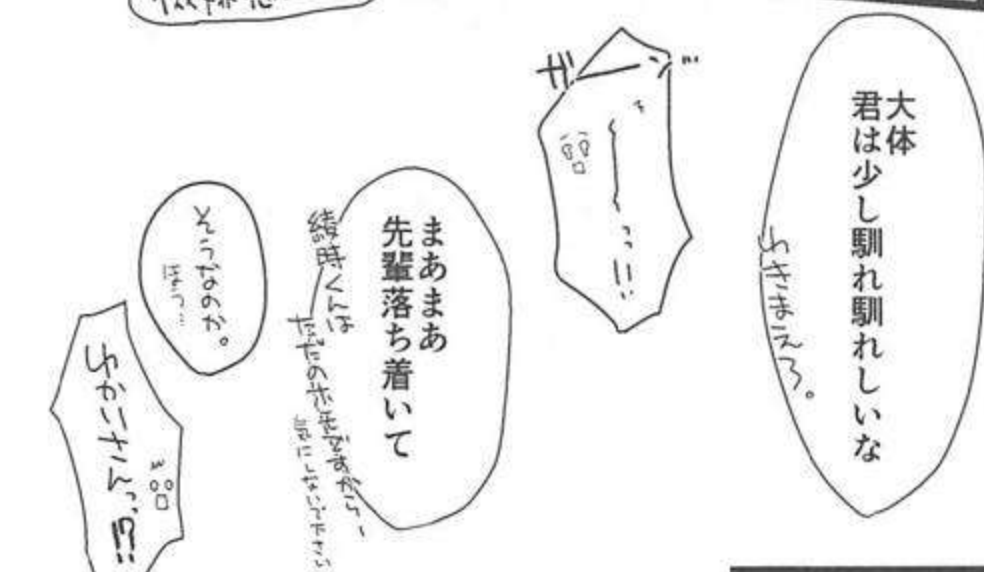 大体
君は少し馴れ馴れしいな
わきまえろ。
ガーン…
まあまあ
先輩落ち着いて
綾時くんは
ただのホモですから〜
気にしないで下さい
そうなのか。
ほっ…
ゆかりさんっっ!!?